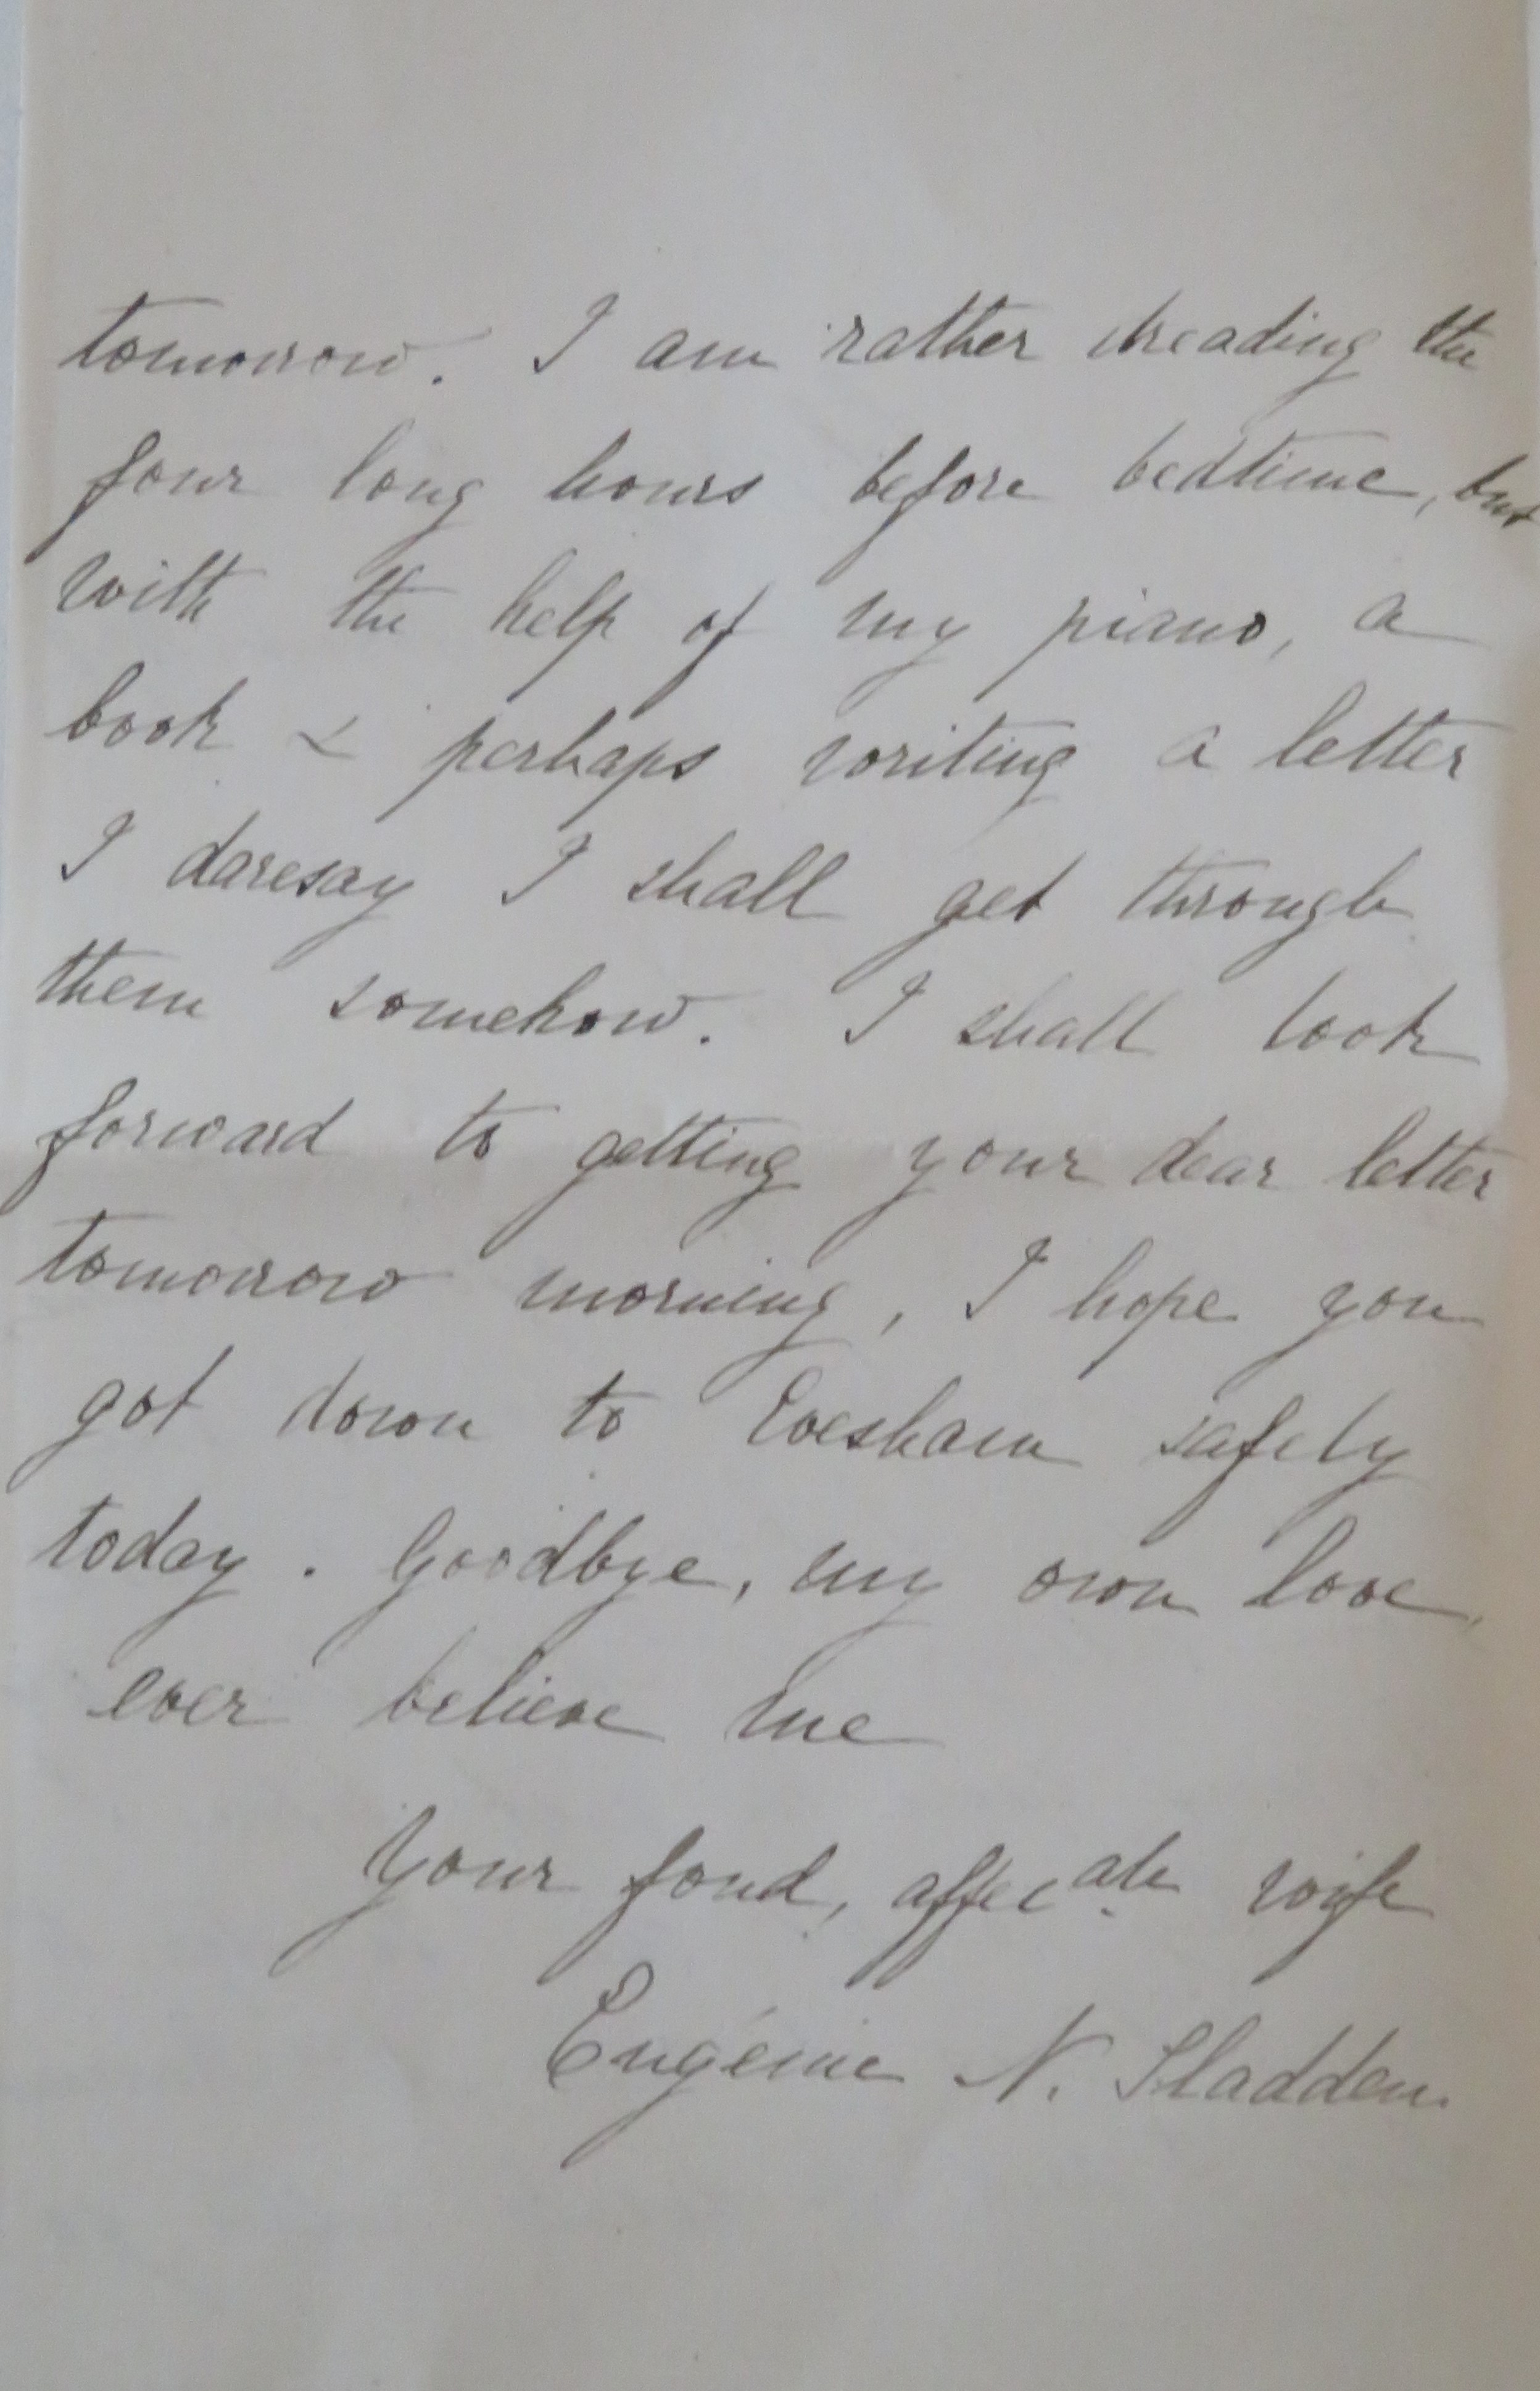 tomorrow. I am rather dreading the
four long hours before bedtime, but
with the help of my piano, a
book & perhaps writing a letter
I daresay I shall get through
them somehow. I shall look
forward to getting your dear letter
tomorrow morning, I hope you
got down to Evesham safely
today. Goodbye, my own love,
ever believe me
Your fond, affecate wife
Eugénie N. Sladden.